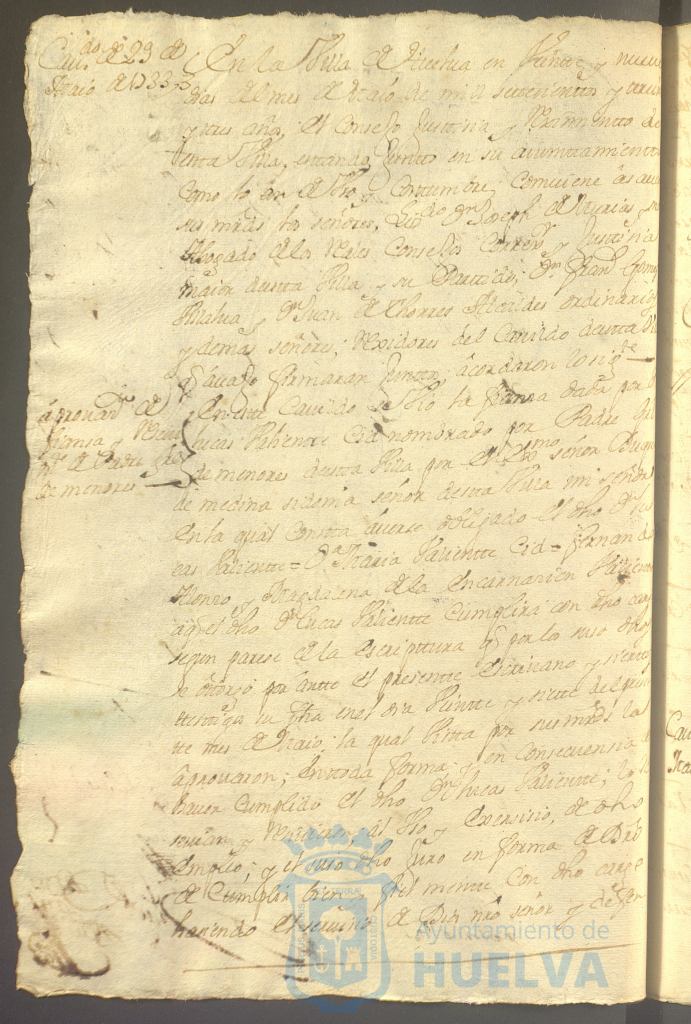 Cav.do de 29 de
Maio de 1733
En la Villa de Huelva en Veinte y nueve
dias del mes de Maio de mil settecientos y treinta
y tres años, el Consejo Justisia y Reximiento de
esta Villa, estando Junttos en su aiuntamiento
como lo an de Vso, y Costtumbre, combiene a saver
sus mrds los señores, Lizdo Dn Joseph de
Abogado de los Rales Consejos Correxr y Justisia
maior de esta Villa y su Partido; Dn
Villalva y Dn Juan de Thorres Alcaldes ordinarios
y demas señores, Rexidores del Cavildo de esta Va
q avajo firmaran Junttos acordaron lo sigte
aprovazn de
fiansa y
de Padre gl
de menores
En este Cavildo se Vio la fianza dada por Dn
Lucas Valiente Cid nombrado por Padre gl
de menores de esta Villa por el Exmo señor Duque
de medina sidonia señor de esta Villa mi señor
en la qual consta averse obligado el dho Dn Lu
cas Valiente = Da Maria Valiente Cid = Fernando
Alonso y Magdalena de la Encarnasion Valiente
aqel dho Dn Lucas Valiente Cumplira con dho cargo
segun parese de la Escripttura q por los suso dhos
se otorgo por antte el presente Escrivano y siertos
testigos su fha en el dia Veintte y siete del presen
te mes de Maio; la qual Vista por sus mrds la
aprovaron; en toda forma; y en consecuensia de
haver Cumplido el dho Dn Lucas Valiente; lo
resivian y Resivieron, al Vso y Exersisio, de dho
Empleo; y el suso dho Juro en forma de Dro
de Cumplir bien y fiel mente con dho cargo
hasiendo el servisio de Dios nro señor y
Ayuntamiento de
HUELVA